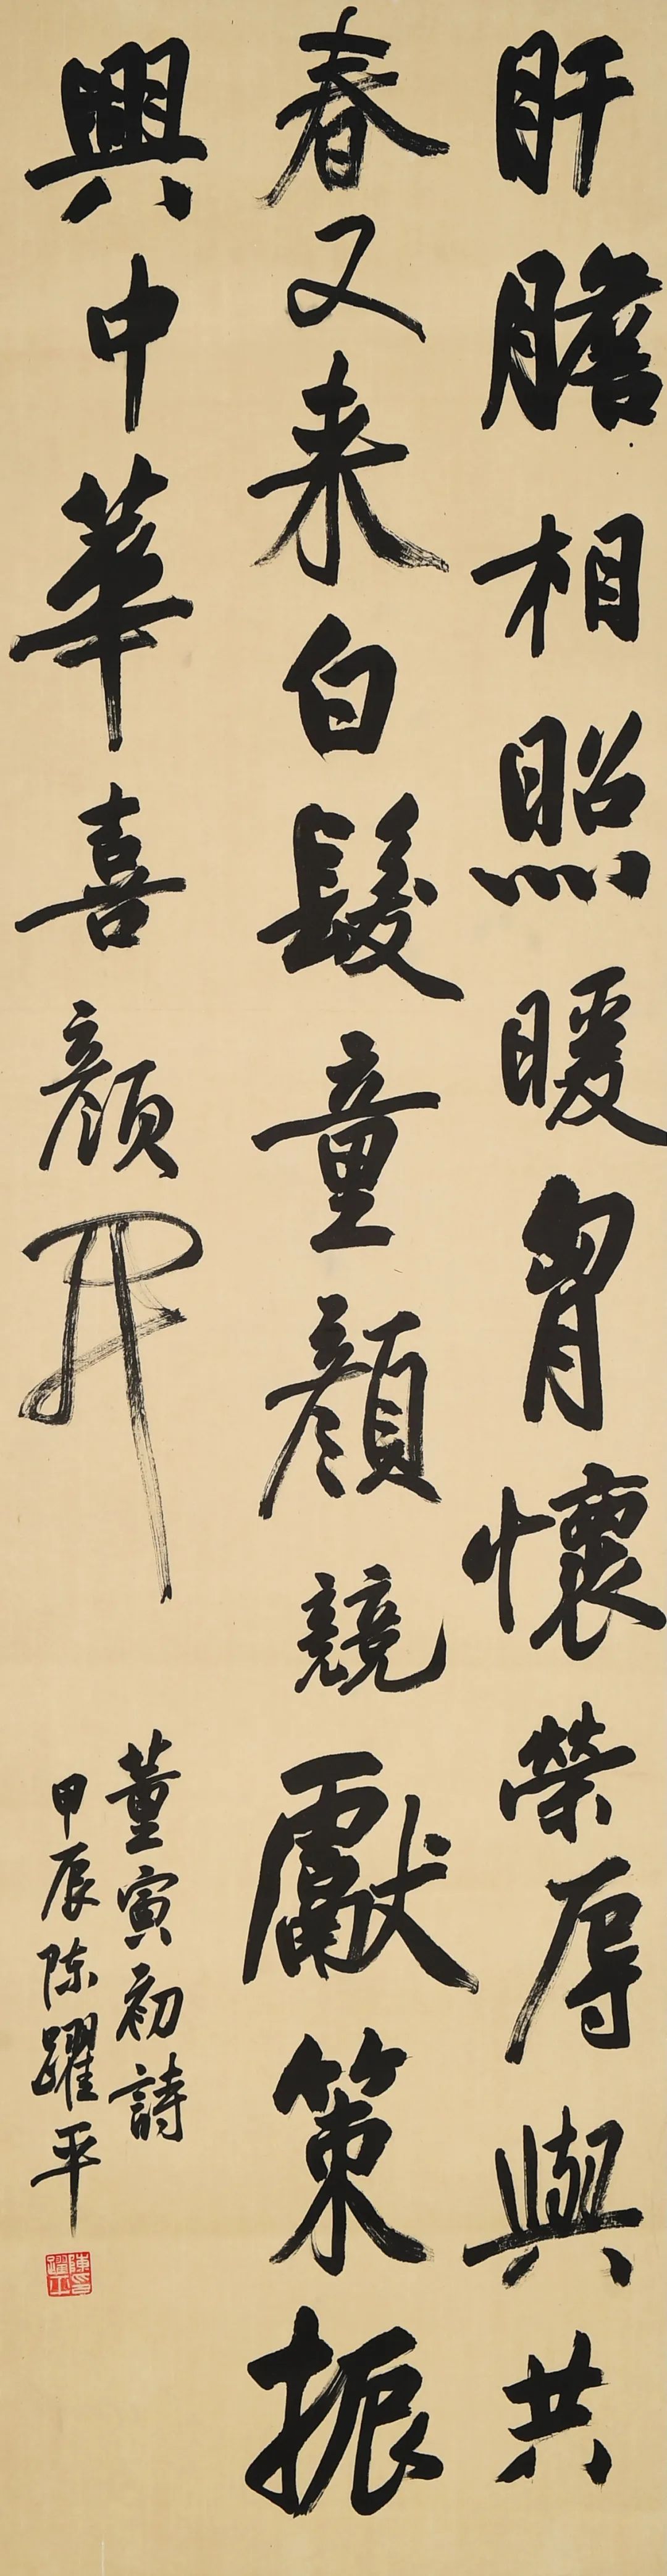 肝膽相照暖胷懷榮辱與共
春又来白髮童顏競獻策振
興中華喜顏开
董寅初詩
甲辰陈躍平